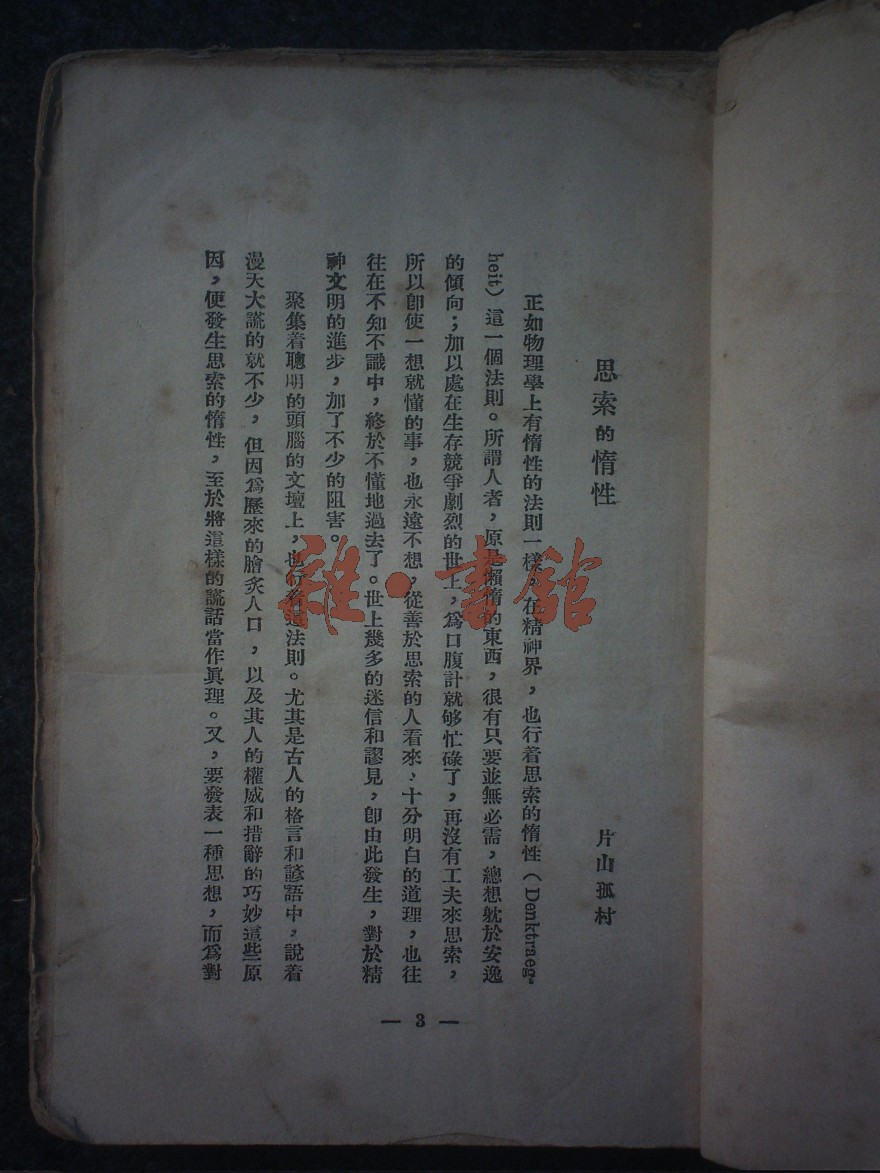 思索的惰性
片山孤村
正如物理學上有惰性的法則一樣,在精神界,也行着思索的惰性(Denktraeg-
heit)這一個法則。所謂人者,原是懶惰的東西,很有只要並無必需,總想躭於安逸
的傾向;加以處在生存競爭劇烈的世上,爲口腹計就够忙碌了,再沒有工夫來思索,
所以卽使一想就懂的事,也永遠不想,從善於思索的人看來,十分明白的道理,也往
往在不知不識中,終於不懂地過去了。世上幾多的迷信和謬見,卽由此發生,對於精
神文明的進步,加了不少的阻害。
聚集着聰明的頭腦的文壇上,也行着這法則。尤其是古人的格言和諺語中,說着
漫天大謊的就不少,但因爲歷來的膾炙人口,以及其人的權威和措辭的巧妙這些原
因,便發生思索的惰性,至於將這樣的謊話當作眞理。又,要發表一種思想,而爲對
— 3 —
雜·書館